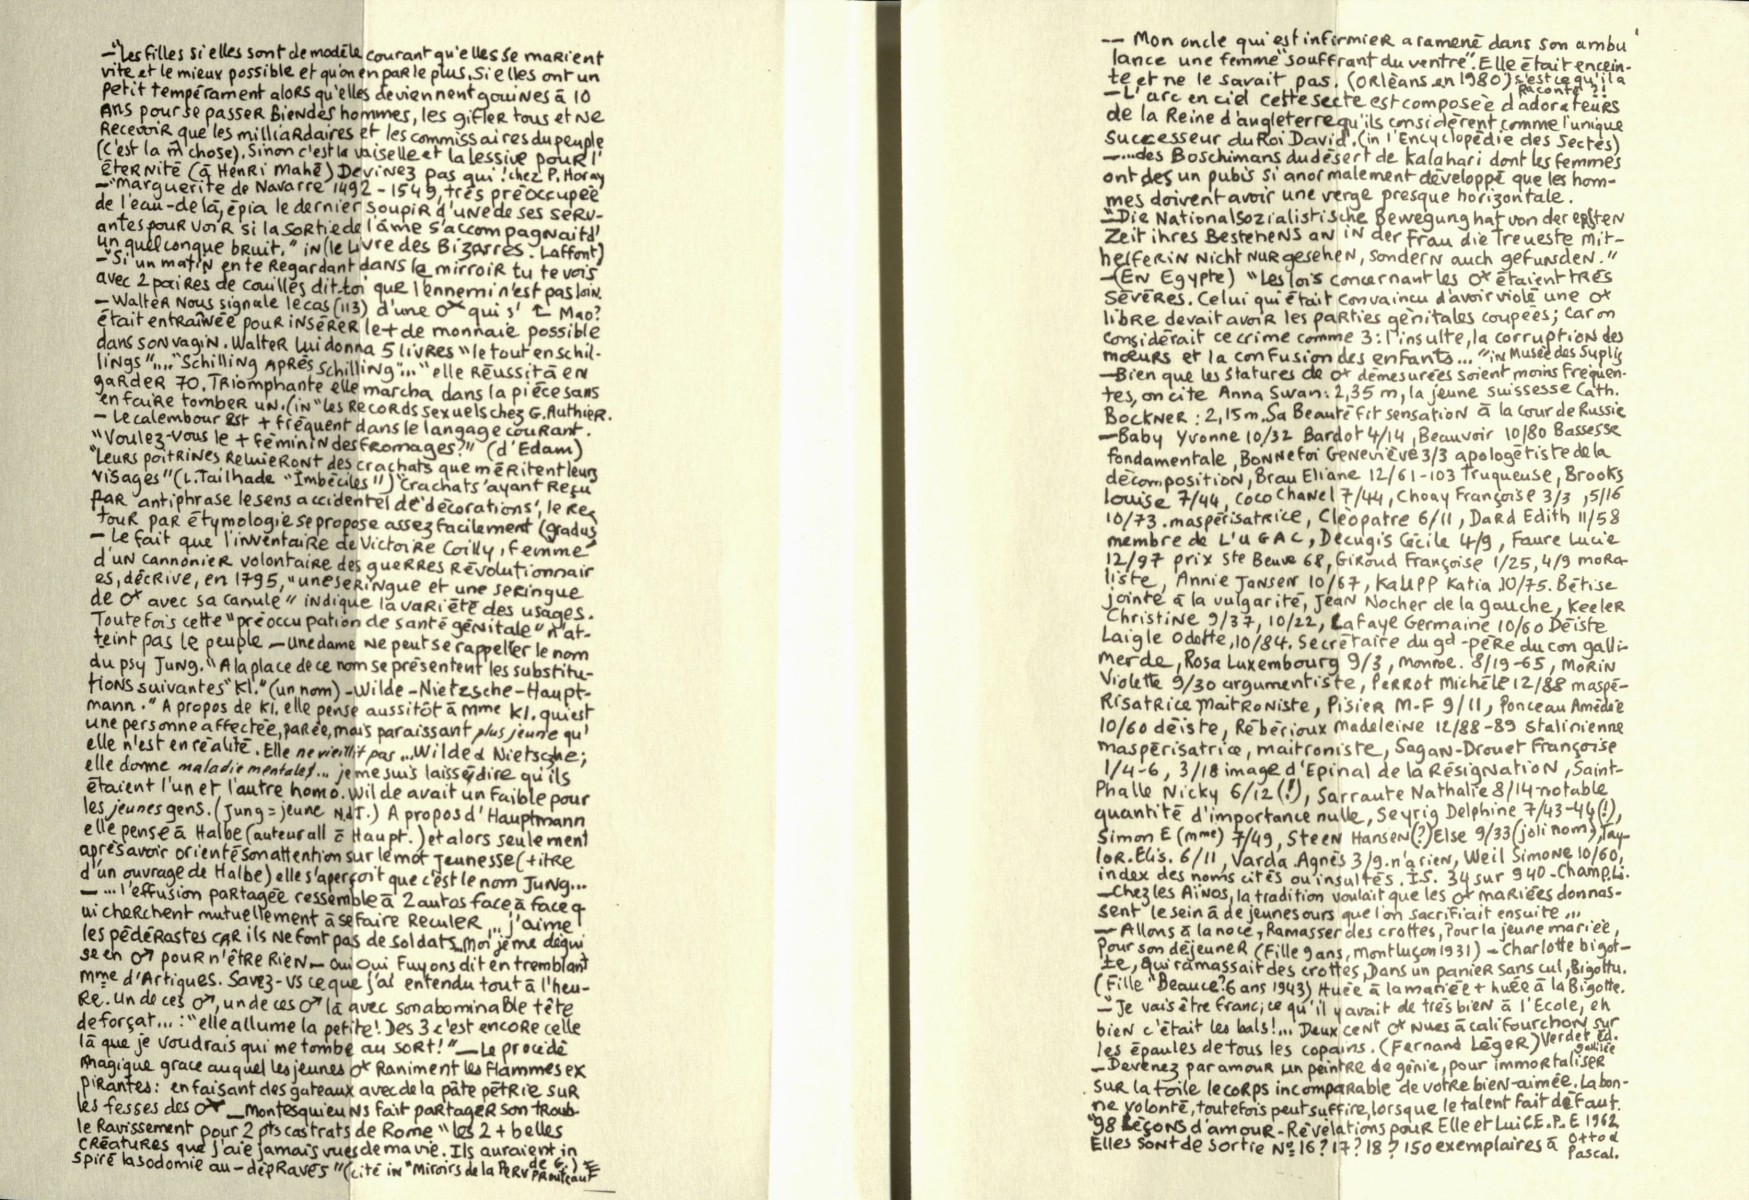 —"Les filles si elles sont de modèle courant qu'elles se marient
vite et le mieux possible et qu'on en parle plus. Si elles ont un
petit tempérament alors qu'elles deviennent gouines à 10
ans pour se passer bien des hommes, les gifler tous et ne
recevoir que les milliardaires et les commissaires du peuple
(c'est la m̂ chose). Sinon c'est la vaiselle et la lessive pour l'
éternité (à Henri Mahé) Devinez pas qui! chez P. Horay
—"Marguerite de Navarre 1492 - 1549, très préoccupée
de l'eau-delà, épia le dernier soupir d'une de ses serv-
antes pour voir si la sortie de l'âme s'accompagnait d'
un quelconque bruit." in (le Livre des Bizarres. Laffont)
—"Si un matin en te regardant dans le mirroir tu te vois
avec 2 paires de couilles dit-toi que l'ennemi n'est pas loin.
— Walter nous signale le cas (113) d'une ♀ qui s' ↳ Mao?
était entraînée pour insérer le + de monnaie possible
dans son vagin. Walter lui donna 5 livres "le tout en schil-
lings"...."Schilling après schilling"..."elle réussit à en
garder 70. Triomphante elle marcha dans la pièce sans
en faire tomber un. (in "les Records sexuels chez G. Authier.
— Le calembour est + fréquent dans le langage courant.
"Voulez-vous le + féminin des fromages?" (d'Edam)
"Leurs poitrines reluieront des crachats que méritent leurs
visages" (L. Tailhade "Imbéciles") 'Crachats' ayant reçu
par antiphrase le sens accidentel de 'décorations', le re-
tour par étymologie se propose assez facilement (gradus
— Le fait que l'inventaire de Victoire Coilly, femme
d'un cannonier volontaire des guerres révolutionnair
es, décrive, en 1795, "une seringue et une seringue
de ♀ avec sa canule" indique la variété des usages.
Toutefois cette "préoccupation de santé génitale" n'at-
teint pas le peuple — une dame ne peut se rappeller le nom
du psy Jung. "A la place de ce nom se présentent les substitu-
tions suivantes "Kl." (un nom) - Wilde - Nietzsche - Haupt-
mann." A propos de Kl. elle pense aussitôt à Mme Kl. qui est
une personne affectée, parée, mais paraissant plus jeune qu'
elle n'est en réalité. Elle ne vieillit pas... Wilde et Nietsche;
elle donne maladie mentale... je me suis laissé dire qu'ils
étaient l'un et l'autre homo. Wilde avait un faible pour
les jeunes gens. (Jung = jeune N.d.T.) A propos d'Hauptmann
elle pense à Halbe (auteur all c̄ Haupt.) et alors seulement
après avoir orienté son attention sur le mot jeunesse (titre
d'un ouvrage de Halbe) elle s'aperçoit que c'est le nom Jung...
— ... l'effusion partagée ressemble à 2 autos face à face q
ui cherchent mutuellement à se faire reculer ... j'aime
les pédérastes car ils ne font pas de soldats. Moi je me dégui
se en ♂ pour n'être rien — oui oui fuyons dit en tremblant
Mme d'Artigues. Savez-vs ce que j'ai entendu tout à l'heu-
re. Un de ces ♂, un de ces ♂ là avec son abominable tête
de forçat...: "elle allume la petite! Des 3 c'est encore celle
là que je voudrais qui me tombe au sort!" — Le procédé
magique grace auquel les jeunes ♀ raniment les flammes ex
pirantes: en faisant des gateaux avec de la pâte pétrie sur
les fesses des ♀ — Montesquieu ns fait partager son troub-
le ravissement pour 2 pts castrats de Rome "les 2 + belles
créatures que j'aie jamais vues de ma vie. Ils auraient in
spiré la sodomie au - dépravés" (cité in "Miroirs de la Perv de G.)
Prouteau
-- Mon oncle qui est infirmier a ramené dans son ambu
lance une femme "souffrant du ventre". Elle était encein-
te et ne le savait pas. (Orléans en 1980) s'est ce qu'il a
raconté?!
—L'arc en ciel cette secte est composée d'adorateurs
de la Reine d'angleterre qu'ils considèrent comme l'unique
successeur du Roi David". (in l'Encyclopédie des Sectes)
—...des Boschimans du désert de Kalahari dont les femmes
ont des un pubis si anormalement développé que les hom-
mes doivent avoir une verge presque horizontale.
—"Die Nationalsozialistische Bewegung hat von der ersten
Zeit ihres Bestehens an in der Frau die treueste Mit-
helferin nicht nur gesehen, sondern auch gefunden."
—(En Egypte) "Les lois concernant les ♀ étaient très
sévères. Celui qui était convaincu d'avoir violé une ♀
libre devait avoir les parties génitales coupées; car on
considérait ce crime comme 3: l'insulte, la corruption des
mœurs et la confusion des enfants..." in Musée des Suplis
—Bien que les statures de ♀ démesurées soient moins fréquen-
tes, on cite Anna Swan: 2,35 m, la jeune suissesse Cath.
Bockner: 2,15m. Sa Beauté fit sensation à la cour de Russie
—Baby Yvonne 10/32 Bardot 4/14, Beauvoir 10/80 Bassesse
fondamentale, Bonnefoi Geneviève 3/3 apologétiste de la
décomposition, Brau Eliane 12/61-103 Truqueuse, Brooks
Louise 7/44, Coco Chanel 7/44, Choay Françoise 3/3, 5/16
10/73. maspérisatrice, Cléopatre 6/11, Dard Edith 11/58
membre de L'UGAC, Décugis Cécile 4/9, Faure Lucie
12/97 prix Ste Beuve 68, Giroud Françoise 1/25, 4/9 mora-
liste, Annie Jansen 10/67, Kaupp Katia 10/75. Bêtise
jointe à la vulgarité, Jean Nocher de la gauche, Keeler
Christine 9/37, 10/22, Lafaye Germaine 10/60 Déiste
Laigle Odette, 10/84. Secrétaire du gd-père du con galli-
merde, Rosa Luxembourg 9/3, Monroe. 8/19-65, Morin
Violette 9/30 argumentiste, Perrot Michèle 12/88 maspé-
risatrice maitroniste, Pisier M-F 9/11, Ponceau Amédée
10/60 déiste, Rébérioux Madeleine 12/88-89 stalinienne
maspérisatrice, maitroniste, Sagan-Drouet Françoise
1/4-6, 3/18 image d'Epinal de la Résignation, Saint-
Phalle Nicky 6/12 (!), Sarraute Nathalie 8/14 notable
quantité d'importance nulle, Seyrig Delphine 7/43-44 (!),
Simon E (mme) 7/49, Steen Hansen (?) Else 9/33 (joli nom), Tay-
lor. Elis. 6/11, Varda Agnès 3/9. n'a rien, Weil Simone 10/60,
index des noms cités ou insultés. I.S. 34 sur 940 - Champ Li.
—Chez les Aïnos, la tradition voulait que les ♀ mariées donnas-
sent le sein à de jeunes ours que l'on sacrifiait ensuite ...
— Allons à la noce, Ramasser des crottes, Pour la jeune mariée,
Pour son déjeuner (Fille 9 ans, Montluçon 1931) — Charlotte bigot-
te, qui ramassait des crottes, Dans un panier sans cul, Bigottu.
(Fille "Beauce? 6 ans 1943) Huée à la mariée + huée à la Bigotte.
—"Je vais être franc; ce qu'il y avait de très bien à l'Ecole, eh
bien c'était les bals!... Deux cent ♀ nues à califourchon sur
les épaules de tous les copains. (Fernand Léger) Verdet éd.
galilée
—Devenez par amour un peintre de génie, pour immortaliser
sur la toile le corps incomparable de votre bien-aimée. La bon-
ne volonté, toutefois peut suffire, lorsque le talent fait défaut.
"98 leçons d'amour - Révélations pour Elle et Lui C.E.P.E 1962
Elles sont de sortie No 16? 17? 18? 150 exemplaires à Otto et
Pascal.